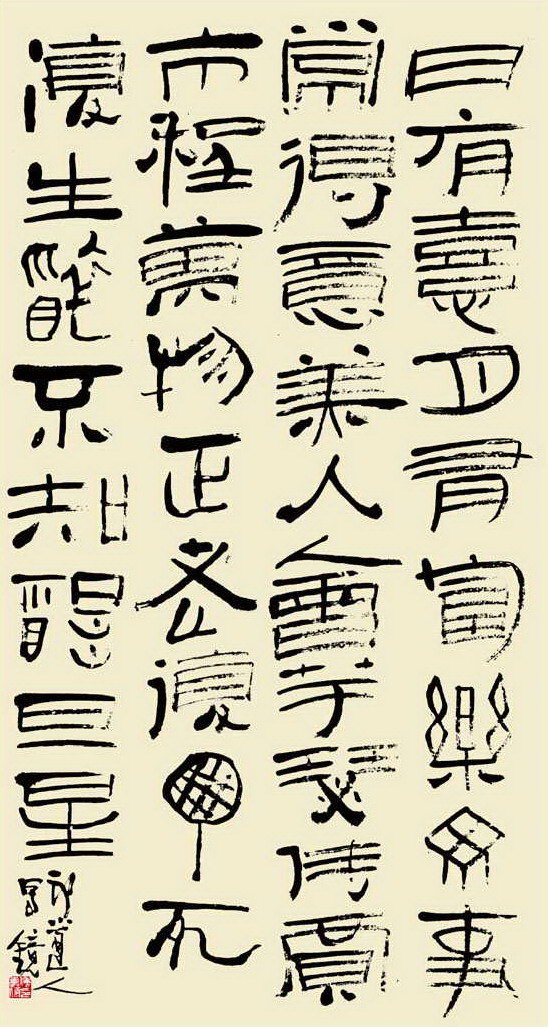 日有憙月有富樂毋事
常得意美人會竽瑟侍賈
市程萬物正老復丁死
復生醉不知醒旦星
道人
鏡